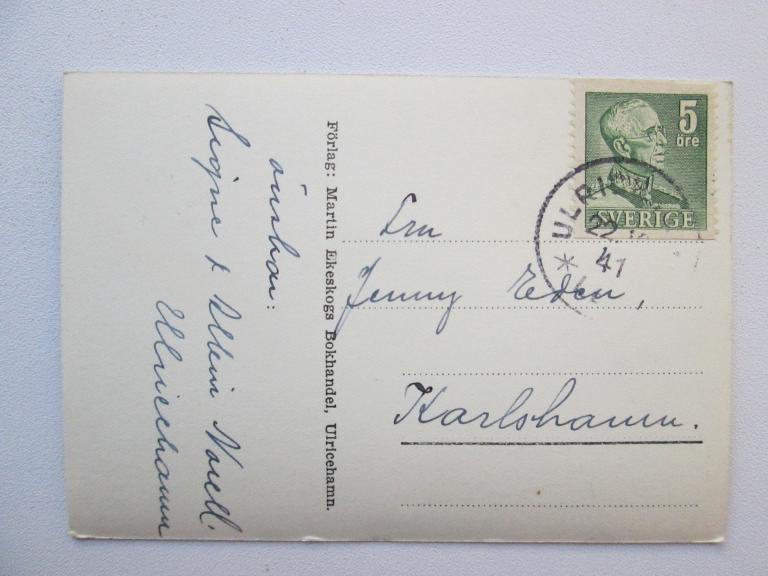 önskar:
Signe & Albin Norell.
Ulricehamn
Förlag: Martin Ekeskogs Bokhandel, Ulricehamn.
5
öre
SVERIGE
ULRI
22
41
Fru
Jenny Edén,
Karlshamn.